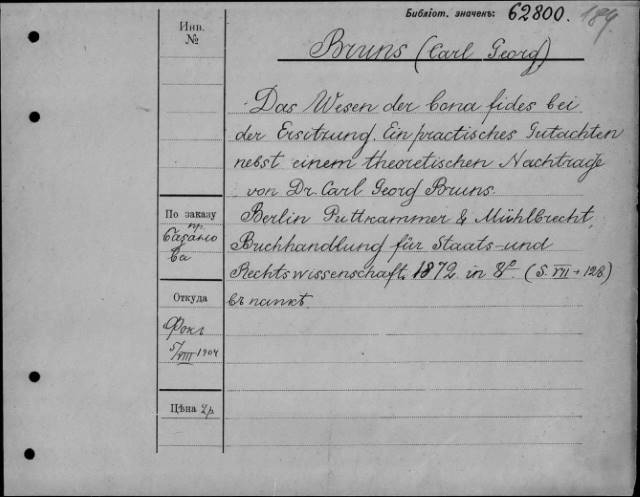 Библіот. значекъ: 62800. 189.
Инв.
№
Bruns (Carl Georg)
Das Wesen der bona fides bei
der Ersitzung. Ein practisches Gutachten
nebst einem theoretischen Nachtrage
von Dr. Carl Georg Bruns.
По заказу
пр.
Базано
ва
Berlin Puttkammer & Mühlbrecht,
Buchhandlung für Staats- und
Rechtswissenschaft. 1872. in 8°. (S. VII + 128)
въ папкѣ.
Откуда
Фокъ
5/VIII 1904
Цѣна 2р